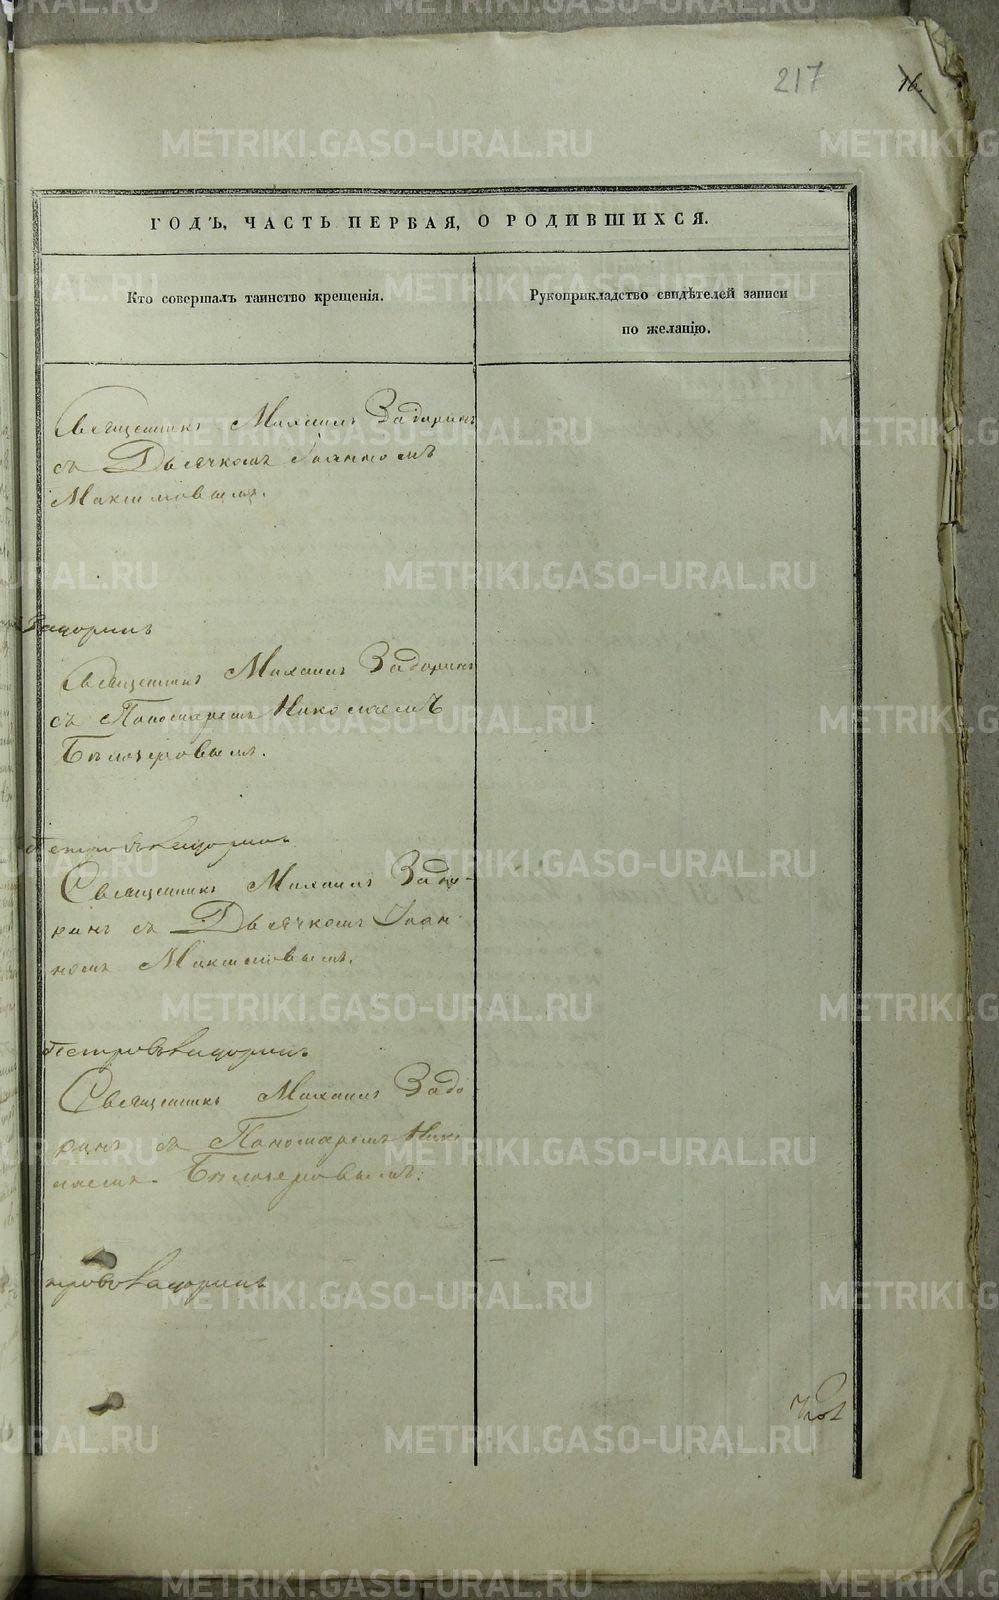 217
16.
ГОДЪ, ЧАСТЬ ПЕРВАЯ, О РОДИВШИХСЯ.
Кто совершалъ таинство крещенія.
Рукоприкладство свидѣтелей записи
по желанію.
Священникъ Михаилъ Задоринъ
съ Дьячкомъ Іоанномъ
Максимовымъ.
Священникъ Михаилъ Задоринъ
съ Пономаремъ Николаемъ
Бѣлозеровымъ.
Священникъ Михаилъ Задо-
ринъ съ Дьячкомъ Іоан-
номъ Максимовымъ.
Священникъ Михаилъ Задо
ринъ съ Пономаремъ Нико
лаемъ Бѣлозеровымъ.
METRIKI.GASO-URAL.RU